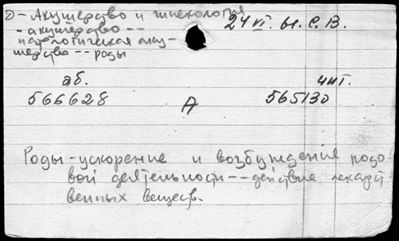 Д - Акушерство и гинекология 24 VI. Ы. С. В.
- акушерство --
патологическая аку-
шерство -- роды
аб. чит.
566628 А 565130
Роды - ускорение и возбуждения родо
вой деятельности -- действие лекарст
венных веществ.